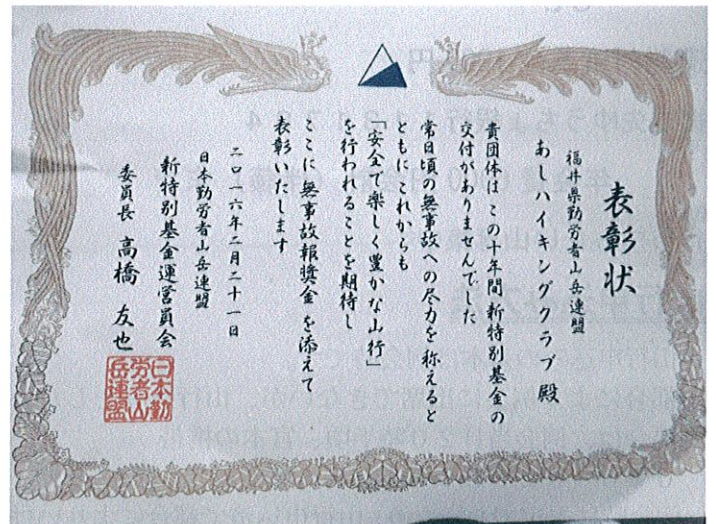 表彰状
福井県勤労者山岳連盟
あしハイキングクラブ 殿
貴団体はこの十年間新特別基金の
交付がありませんでした
常日頃の無事故への尽力を称えると
ともにこれからも
「安全で楽しく豊かな山行」
を行われることを期待し
ここに無事故報奨金を添えて
表彰いたします
二〇一六年二月二十一日
日本勤労者山岳連盟
新特別基金運営員会
委員長 高橋 友也
日本勤
労者山
岳連盟